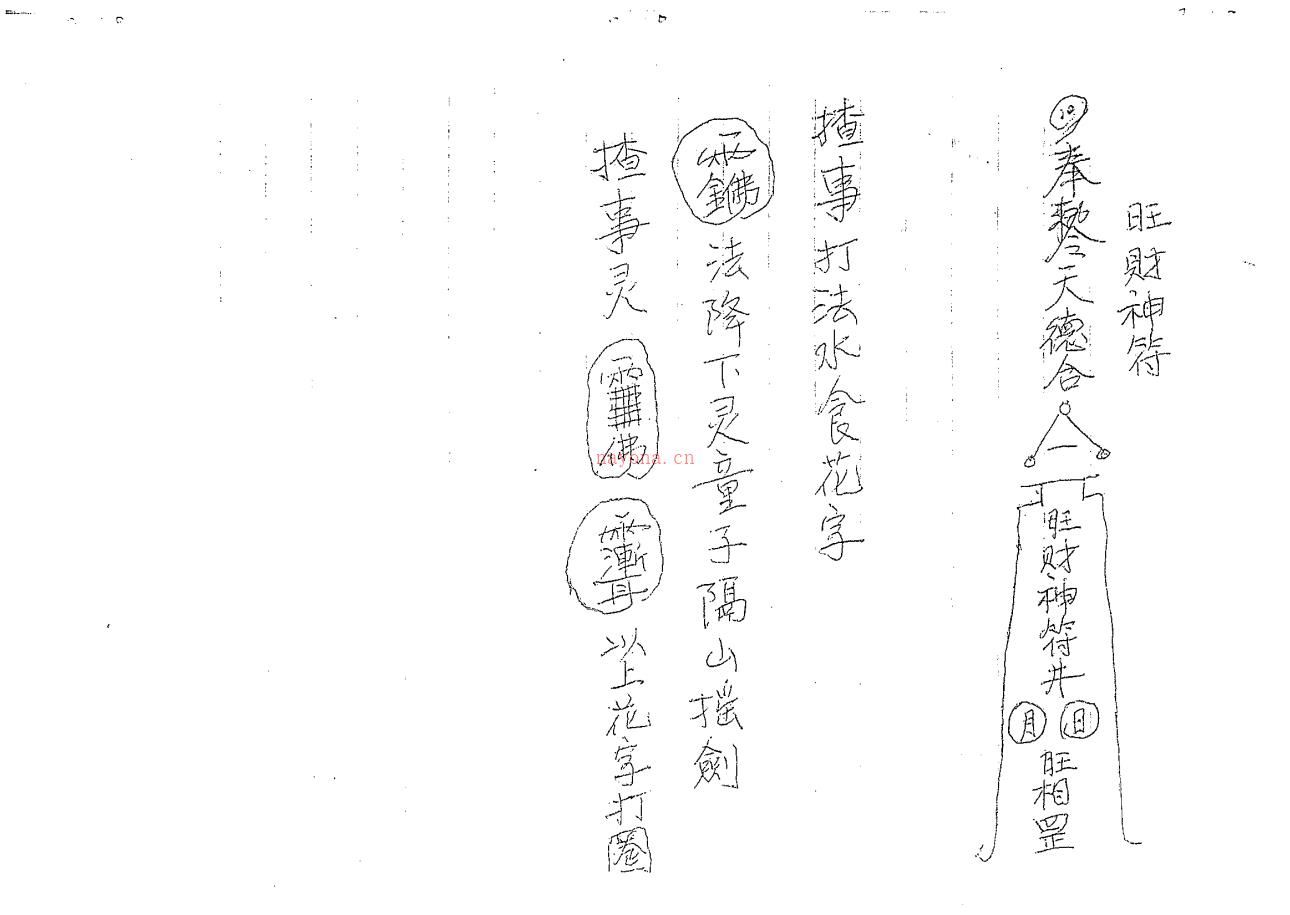 旺財神符
奉勅令天德合
旺財神符井
月 日
旺相罡
揸事打法水食花字
法降下灵童子隔山搖劍
揸事灵
以上花字打圈
nayona.cn